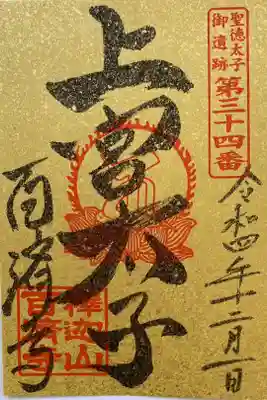 聖徳太子
御遺跡
第三十四番
令和四年十二月一日
上宮太子
百濟寺
釋迦山
百済寺